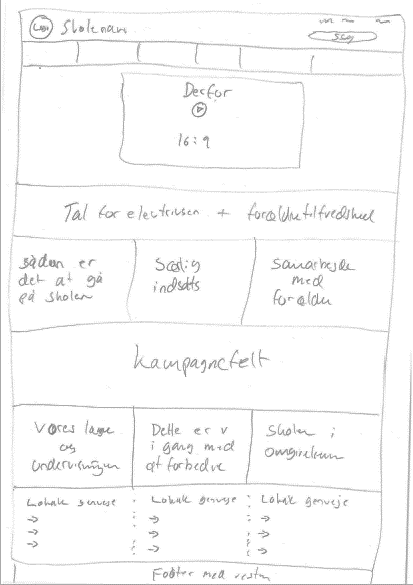 Logo Skolenavn
Søg
Derfor
16:9
Tal for elevtrivsel + forældretilfredshed
Sådan er
det at gå
på skolen
Særlig
indsats
Samarbejde
med
forældre
Kampagnefelt
Vores lærere
og
undervisningen
Dette er vi
i gang med
at forbedre
Skolen i
omgivelserne
Lokale genveje : Lokale genveje : Lokale genveje
→ → →
→ → →
→ → →
Footer med resten